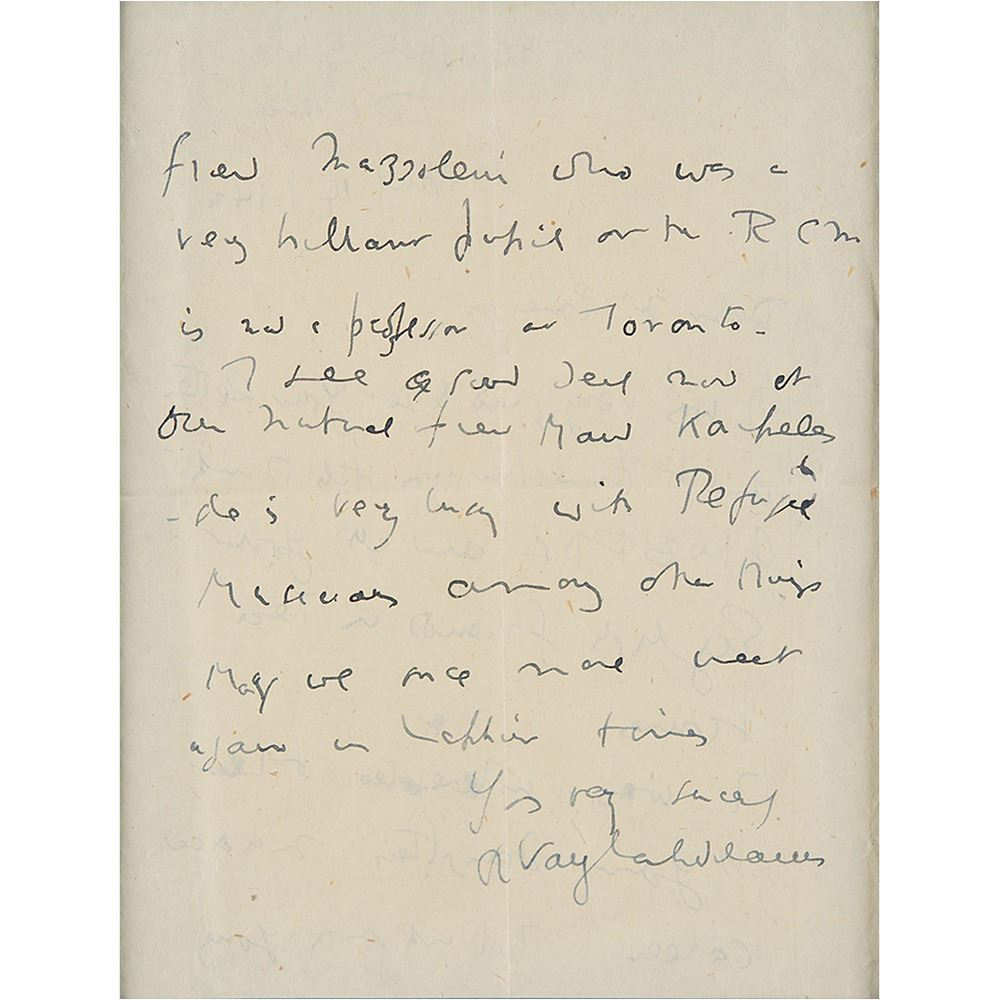 friend Mazzoleni who was a
very brilliant pupil at the R C M
is now a professor at Toronto.
I see a good deal now of
our mutual friend Maud Karpeles
- she is very busy with Refugee
Musicians among other things
May we once more meet
again in happier times
Yrs very sincerely
R Vaughan Williams